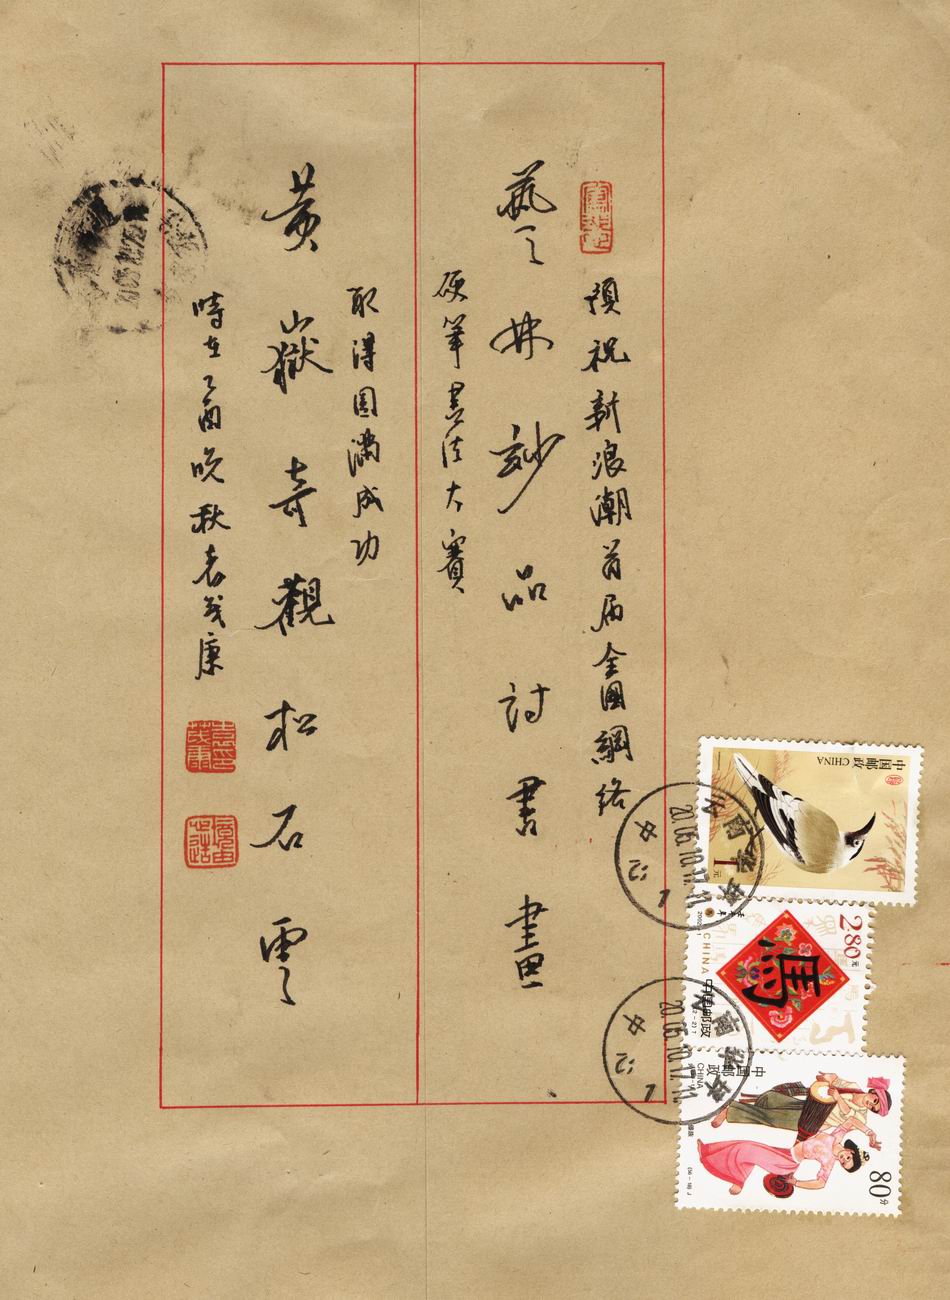 預祝新浪潮首届全國網絡
藝林妙品詩書畫
硬筆書法大賽
取得圓滿成功
黃嶽奇觀松石雲
時在乙酉晚秋袁茂康
中国邮政 CHINA
1元
2.80元
CHINA 中国邮政
中国邮政
CHINA
80分